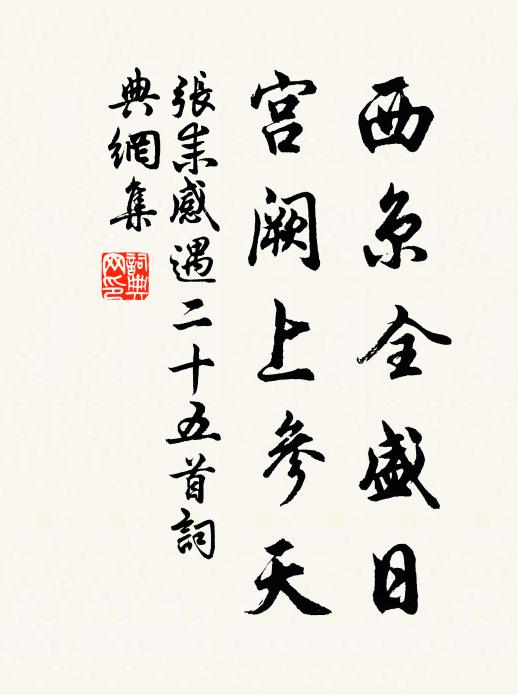 西京全盛日
宫阙上参天
張耒感遇二十五首詞
典網集
詞典网印